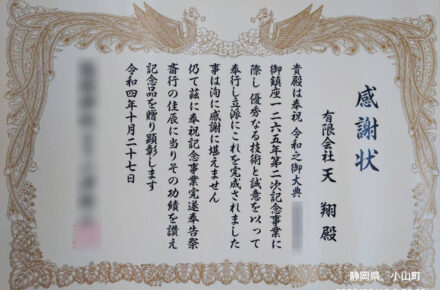 感謝状
有限会社 天翔 殿
貴殿は奉祝 令和之御大典
御鎮座一二六五年第二次記念事業に
際し 優秀なる技術と誠意を以って
奉行し立派にこれを完成されました
事は洵に感謝に堪えません
仍て茲に奉祝記念事業完遂奉告祭
斎行の佳辰に当りその功績を讃え
記念品を贈り顕彰します
令和四年十月二十七日
静岡県、小山町